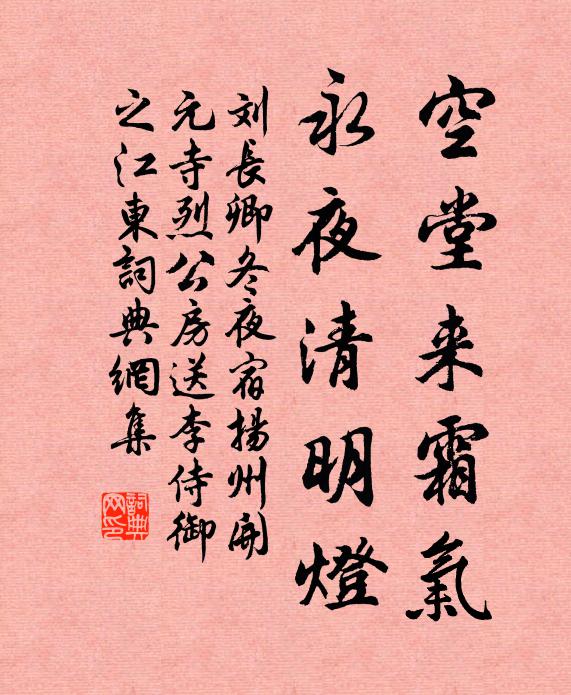 空堂来霜氣
永夜清明燈
刘長卿冬夜宿揚州開
元寺烈公房送李侍御
之江東詞典網集
詞典网印